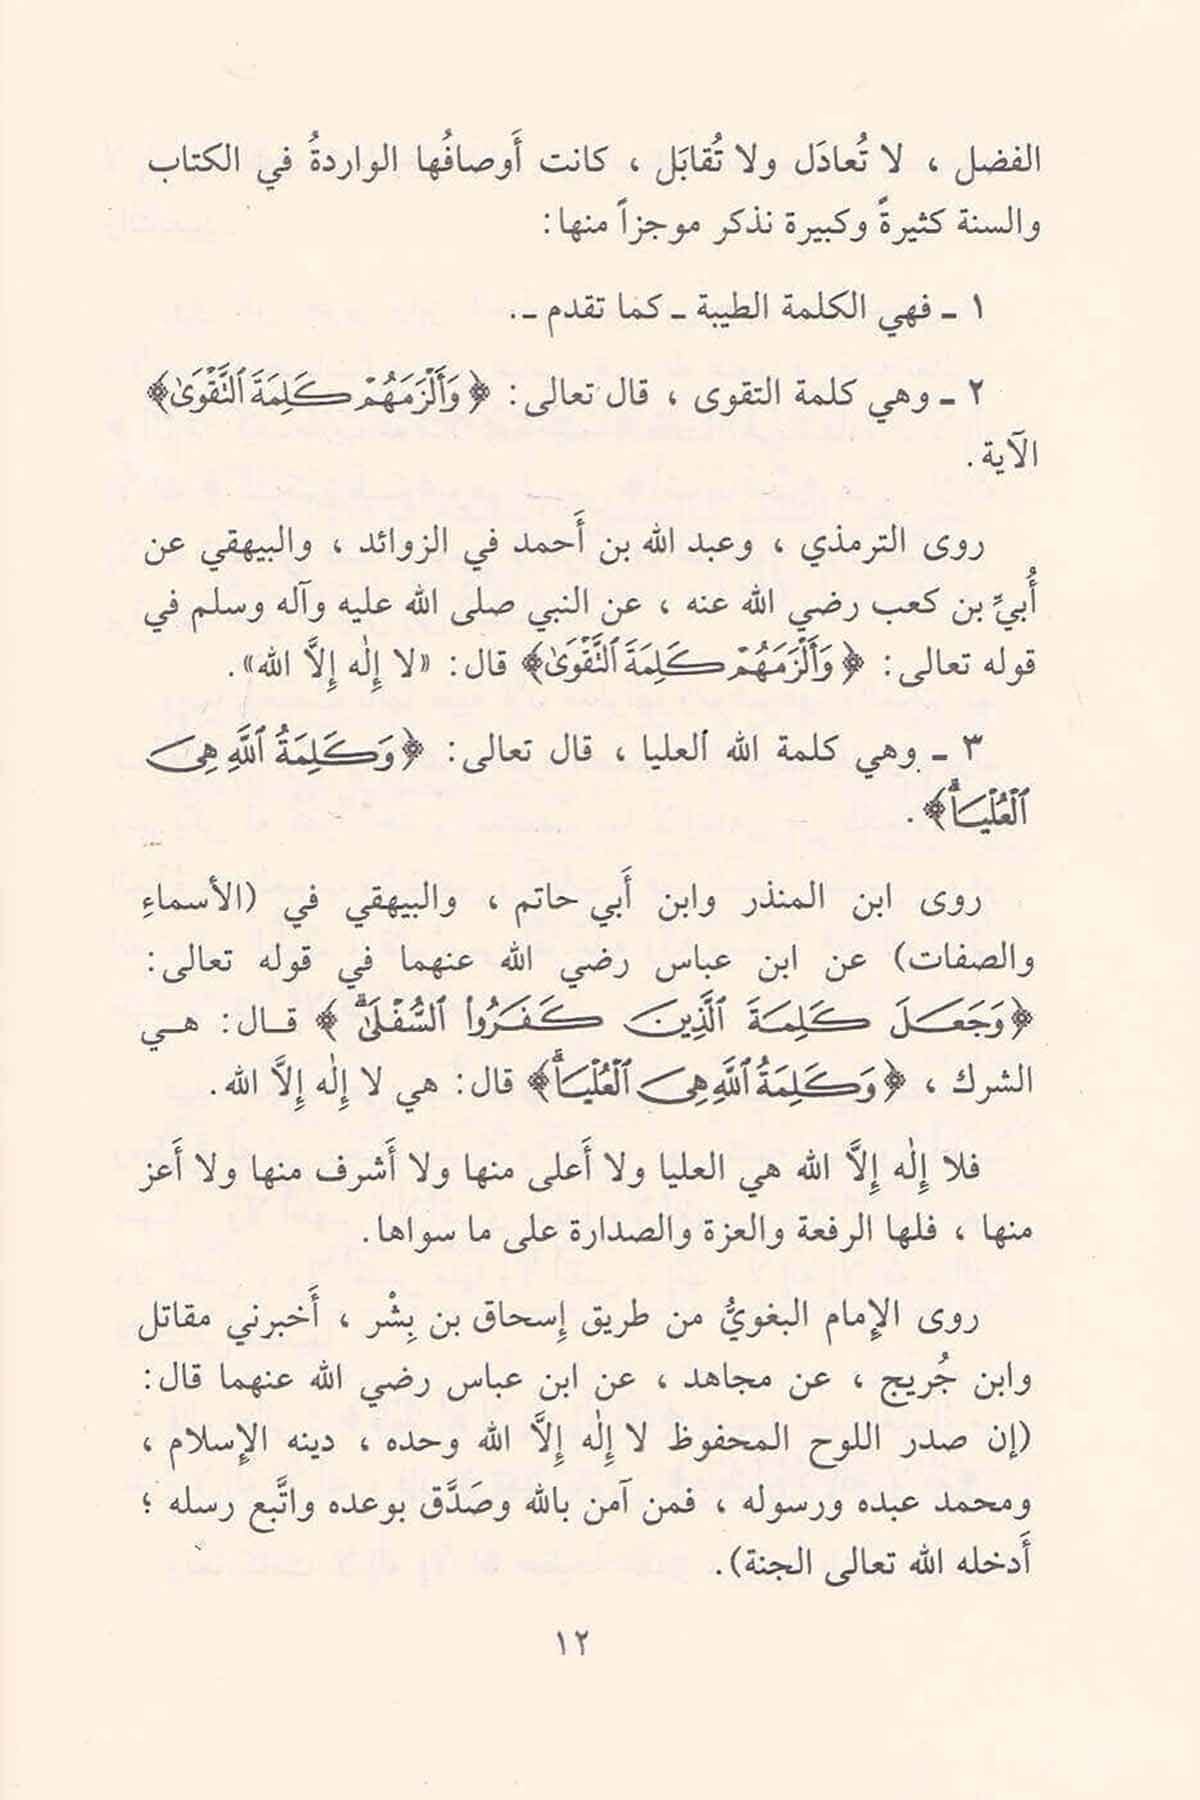 الفضل ، لا تُعادَل ولا تُقابَل ، كانت أَوصافُها الواردةُ في الكتاب
والسنة كثيرةً وكبيرة نذكر موجزاً منها:
١ ـ فهي الكلمة الطيبة ـ كما تقدم ـ.
٢ ـ وهي كلمة التقوى ، قال تعالى: ﴿وَأَلْزَمَهُمْ كَلِمَةَ ٱلتَّقْوَىٰ﴾
الآية.
روى الترمذي ، وعبد الله بن أَحمد في الزوائد ، والبيهقي عن
أُبيِّ بن كعب رضي الله عنه ، عن النبي صلى الله عليه وآله وسلم في
قوله تعالى: ﴿وَأَلْزَمَهُمْ كَلِمَةَ ٱلتَّقْوَىٰ﴾ قال: «لا إِلٰه إِلاَّ الله».
٣ ـ وهي كلمة الله العليا ، قال تعالى: ﴿وَكَلِمَةُ ٱللَّهِ هِىَ
ٱلْعُلْيَاۗ﴾.
روى ابن المنذر وابن أَبي حاتم ، والبيهقي في (الأسماءِ
والصفات) عن ابن عباس رضي الله عنهما في قوله تعالى:
﴿وَجَعَلَ كَلِمَةَ ٱلَّذِينَ كَفَرُوا۟ ٱلسُّفْلَىٰۗ﴾ قال: هي
الشرك ، ﴿وَكَلِمَةُ ٱللَّهِ هِىَ ٱلْعُلْيَاۗ﴾ قال: هي لا إِلٰه إِلاَّ الله.
فلا إِلٰه إِلاَّ الله هي العليا ولا أَعلى منها ولا أَشرف منها ولا أَعز
منها ، فلها الرفعة والعزة والصدارة على ما سواها.
روى الإِمام البغويُّ من طريق إِسحاق بن بِشْر ، أَخبرني مقاتل
وابن جُريج ، عن مجاهد ، عن ابن عباس رضي الله عنهما قال:
(إن صدر اللوح المحفوظ لا إِلٰه إِلاَّ الله وحده ، دينه الإِسلام ،
ومحمد عبده ورسوله ، فمن آمن بالله وصَدَّق بوعده واتَّبع رسله ؛
أَدخله الله تعالى الجنة).
١٢